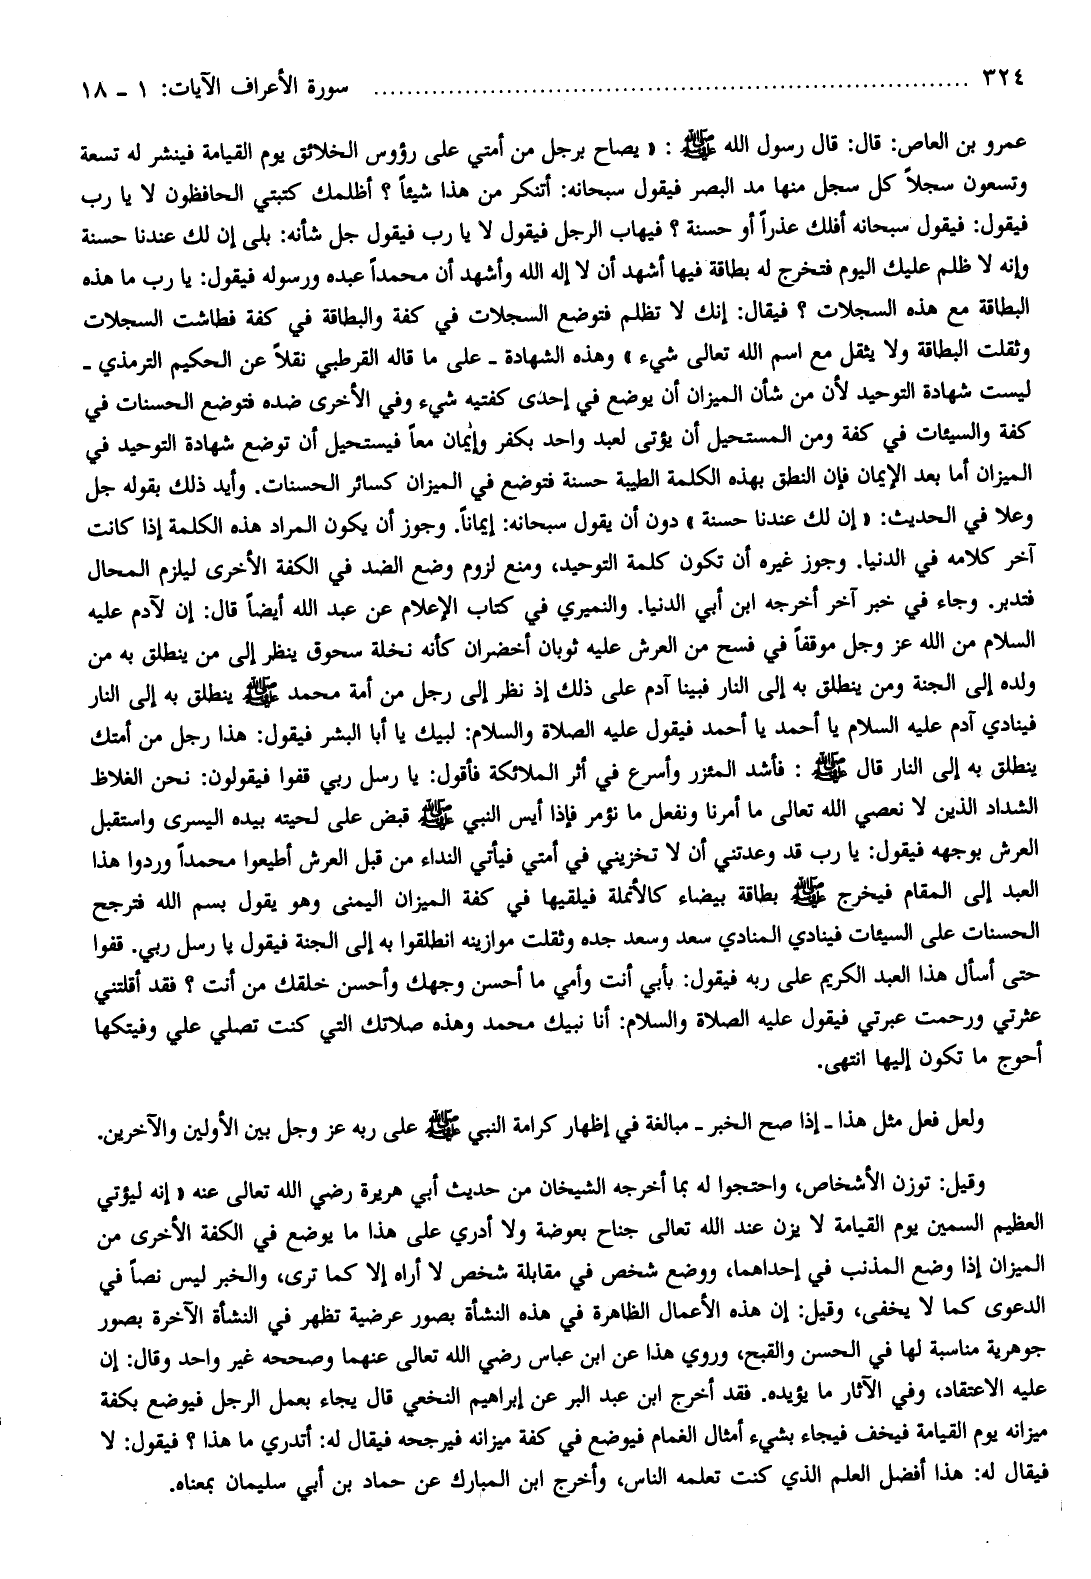 ٣٢٤ ........................................................................ سورة الأعراف الآيات: ١ ـ ١٨
عمرو بن العاص: قال: قال رسول الله ﷺ : « يصاح برجل من أمتي على رؤوس الخلائق يوم القيامة فينشر له تسعة
وتسعون سجلاً كل سجل منها مد البصر فيقول سبحانه: أتنكر من هذا شيئاً ؟ أظلمك كتبتي الحافظون لا يا رب
فيقول: فيقول سبحانه أفلك عذراً أو حسنة ؟ فيهاب الرجل فيقول لا يا رب فيقول جل شأنه: بلى إن لك عندنا حسنة
وإنه لا ظلم عليك اليوم فتخرج له بطاقة فيها أشهد أن لا إله الله وأشهد أن محمداً عبده ورسوله فيقول: يا رب ما هذه
البطاقة مع هذه السجلات ؟ فيقال: إنك لا تظلم فتوضع السجلات في كفة والبطاقة في كفة فطاشت السجلات
وثقلت البطاقة ولا يثقل مع اسم الله تعالى شيء » وهذه الشهادة ـ على ما قاله القرطبي نقلاً عن الحكيم الترمذي ـ
ليست شهادة التوحيد لأن من شأن الميزان أن يوضع في إحدى كفتيه شيء وفي الأخرى ضده فتوضع الحسنات في
كفة والسيئات في كفة ومن المستحيل أن يؤتى لعبد واحد بكفر وإيمان معاً فيستحيل أن توضع شهادة التوحيد في
الميزان أما بعد الإيمان فإن النطق بهذه الكلمة الطيبة حسنة فتوضع في الميزان كسائر الحسنات. وأيد ذلك بقوله جل
وعلا في الحديث: « إن لك عندنا حسنة » دون أن يقول سبحانه: إيماناً. وجوز أن يكون المراد هذه الكلمة إذا كانت
آخر كلامه في الدنيا. وجوز غيره أن تكون كلمة التوحيد، ومنع لزوم وضع الضد في الكفة الأخرى ليلزم المحال
فتدبر. وجاء في خبر آخر أخرجه ابن أبي الدنيا. والنميري في كتاب الإعلام عن عبد الله أيضاً قال: إن لآدم عليه
السلام من الله عز وجل موقفاً في فسح من العرش عليه ثوبان أخضران كأنه نخلة سحوق ينظر إلى من ينطلق به من
ولده إلى الجنة ومن ينطلق به إلى النار فبينا آدم على ذلك إذ نظر إلى رجل من أمة محمد ﷺ ينطلق به إلى النار
فينادي آدم عليه السلام يا أحمد يا أحمد فيقول عليه الصلاة والسلام: لبيك يا أبا البشر فيقول: هذا رجل من أمتك
ينطلق به إلى النار قال ﷺ : فأشد المئزر وأسرع في أثر الملائكة فأقول: يا رسل ربي قفوا فيقولون: نحن الغلاظ
الشداد الذين لا نعصي الله تعالى ما أمرنا ونفعل ما نؤمر فإذا أيس النبي ﷺ قبض على لحيته بيده اليسرى واستقبل
العرش بوجهه فيقول: يا رب قد وعدتني أن لا تخزيني في أمتي فيأتي النداء من قبل العرش أطيعوا محمداً وردوا هذا
العبد إلى المقام فيخرج ﷺ بطاقة بيضاء كالأنملة فيلقيها في كفة الميزان اليمنى وهو يقول بسم الله فترجح
الحسنات على السيئات فينادي المنادي سعد وسعد جده وثقلت موازينه انطلقوا به إلى الجنة فيقول يا رسل ربي. قفوا
حتى أسأل هذا العبد الكريم على ربه فيقول: بأبي أنت وأمي ما أحسن وجهك وأحسن خلقك من أنت ؟ فقد أقلتني
عثرتي ورحمت عبرتي فيقول عليه الصلاة والسلام: أنا نبيك محمد وهذه صلاتك التي كنت تصلي علي وفيتكها
أحوج ما تكون إليها انتهى.
ولعل فعل مثل هذا ـ إذا صح الخبر ـ مبالغة في إظهار كرامة النبي ﷺ على ربه عز وجل بين الأولين والآخرين.
وقيل: توزن الأشخاص، واحتجوا له بما أخرجه الشيخان من حديث أبي هريرة رضي الله تعالى عنه « إنه ليؤتي
العظيم السمين يوم القيامة لا يزن عند الله تعالى جناح بعوضة ولا أدري على هذا ما يوضع في الكفة الأخرى من
الميزان إذا وضع المذنب في إحداهما، ووضع شخص في مقابلة شخص لا أراه إلا كما ترى، والخبر ليس نصاً في
الدعوى كما لا يخفى، وقيل: إن هذه الأعمال الظاهرة في هذه النشأة بصور عرضية تظهر في النشأة الآخرة بصور
جوهرية مناسبة لها في الحسن والقبح، وروي هذا عن ابن عباس رضي الله تعالى عنهما وصححه غير واحد وقال: إن
عليه الاعتقاد، وفي الآثار ما يؤيده. فقد أخرج ابن عبد البر عن إبراهيم النخعي قال يجاء بعمل الرجل فيوضع بكفة
ميزانه يوم القيامة فيخف فيجاء بشيء أمثال الغمام فيوضع في كفة ميزانه فيرجحه فيقال له: أتدري ما هذا ؟ فيقول: لا
فيقال له: هذا أفضل العلم الذي كنت تعلمه الناس، وأخرج ابن المبارك عن حماد بن أبي سليمان بمعناه.